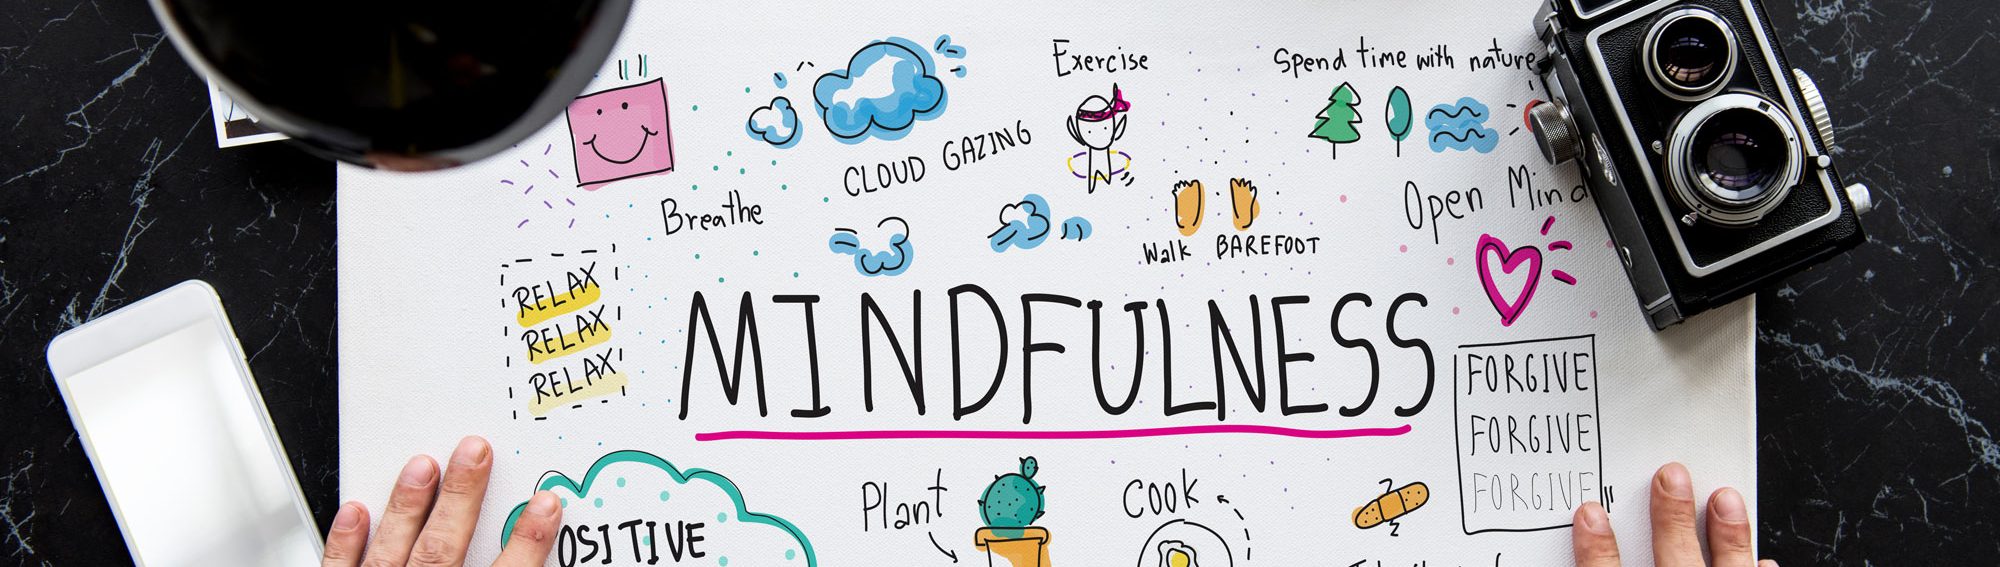 Exercise
Spend time with nature
CLOUD GAZING
Breathe
Walk BAREFOOT
Open Mind
RELAX
RELAX
RELAX
MINDFULNESS
FORGIVE
FORGIVE
FORGIVE
Plant
Cook
OSITIVE